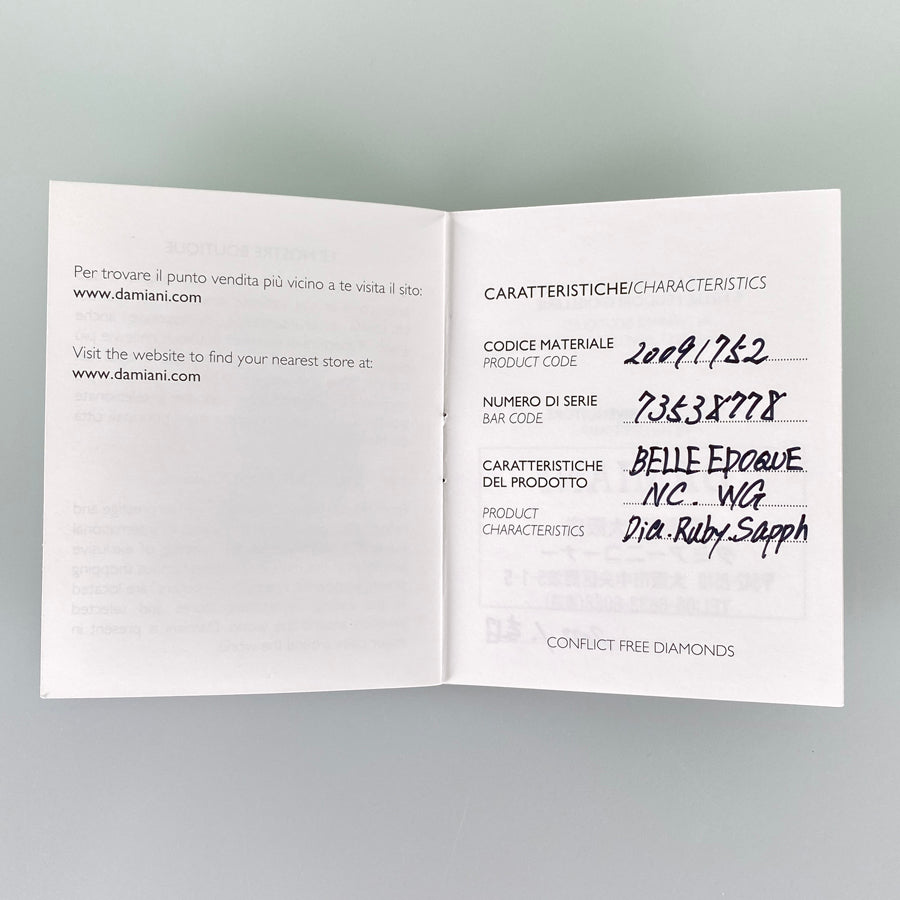 Per trovare il punto vendita più vicino a te visita il sito:
www.damiani.com
Visit the website to find your nearest store at:
www.damiani.com
CARATTERISTICHE/CHARACTERISTICS
CODICE MATERIALE
PRODUCT CODE
20091752
NUMERO DI SERIE
BAR CODE
73538778
CARATTERISTICHE
DEL PRODOTTO
PRODUCT
CHARACTERISTICS
BELLE EPOQUE
NC. WG
Dia. Ruby. Sapph
CONFLICT FREE DIAMONDS